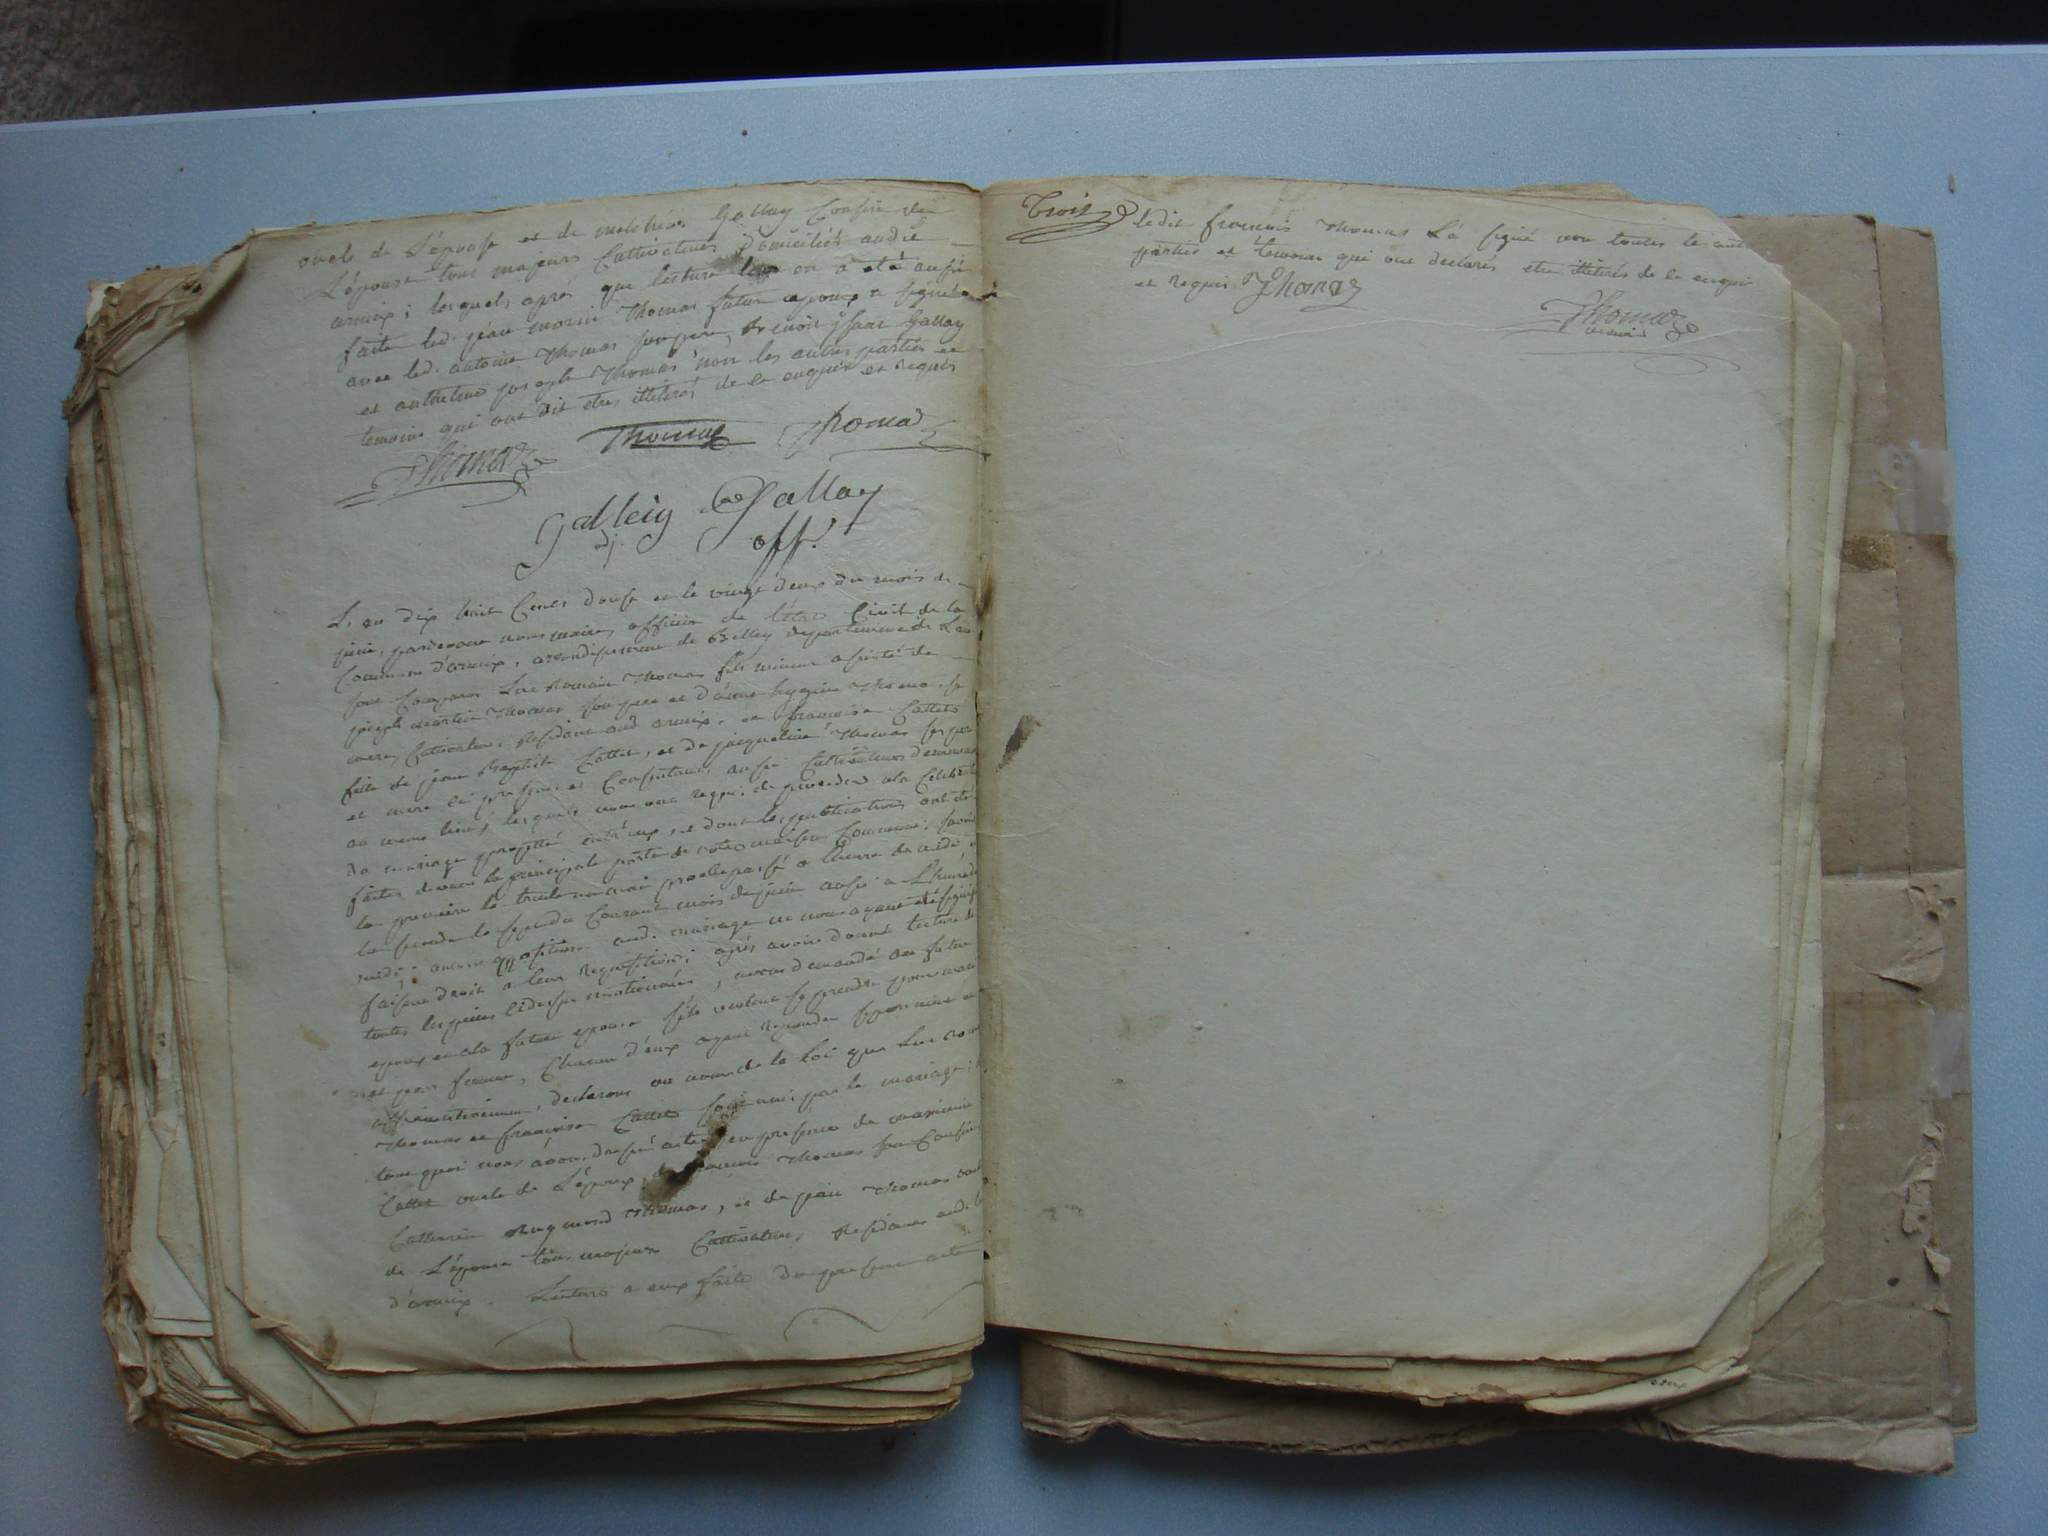 oncle de L'épouse et de melchior Gallay Cousin de
L'épouse tous majeurs Cultivateurs domiciliés audit
armix; lesquels après que lecture leur on a été aussi
faite led. jean morin Thomas futur epoux a signé
avec led. antoine Thomas son pere, Benoit isaac Gallay
et anthelme joseph Thomas non les autres parties et
temoins qui ont dit etre illiterés de ce enquis et requis
Thomas Thomas Thomas
Galley Gallay
adj. off.
L'an dix huit Cents douse et le vingt deux du mois de
juin, pardevant nous maire, officier de l'état Civil de la
Commune d'armix, arrondissement de Belley departement de L'ain
sont Comparus Luc Romain Thomas fils mineur assisté de
joseph martin Thomas son pere et d'anne hygine Thomas sa
mere, Cultivateur, Residant aud armix, et francoise Cattet
fille de jean Baptiste Cattet, et de jacqueline Thomas ses pere
et mere ici presents et Consentants, aussi Cultivateurs demeurant
au meme lieu, lesquels nous ont requis de proceder a la Celebration
du mariage projetté entr'eux, et dont les publications ont été
faites devant la principale porte de notre maison Commune: savoir
la premiere le trente un mai proche passé a l'heure de midi et
la seconde le sept du Courant mois de juin aussi a L'heure de
midi; aucune opposition aud. mariage ne nous ayant été signifiée
faisant droit a leur requisition; après avoir donné lecture de
toutes les pieces cidessus mentionnées, avons demandé au futur
epoux et a la future epouse s'ils veulent se prendre pour mari
et pour femme, Chacun d'eux ayant repondu separement et
affirmativement, declarons au nom de la loi que Luc Romain
Thomas et francoise Cattet sont unis par le mariage;
tout quoi nous avons dressé acte, en presence de
Cattet oncle de L'epoux, francois Thomas son Cousin
Raymond Thomas, et de jean Thomas oncle
de L'épouse tous majeurs Cultivateurs, Residants aud. lieu
d'armix. Lecture a eux faite du present acte
Trois
ledit francois Thomas L'a signé non toutes les autres
parties et temoins qui ont declarés etre illiterés de ce enquis
et requis Thomas
Thomas
maire